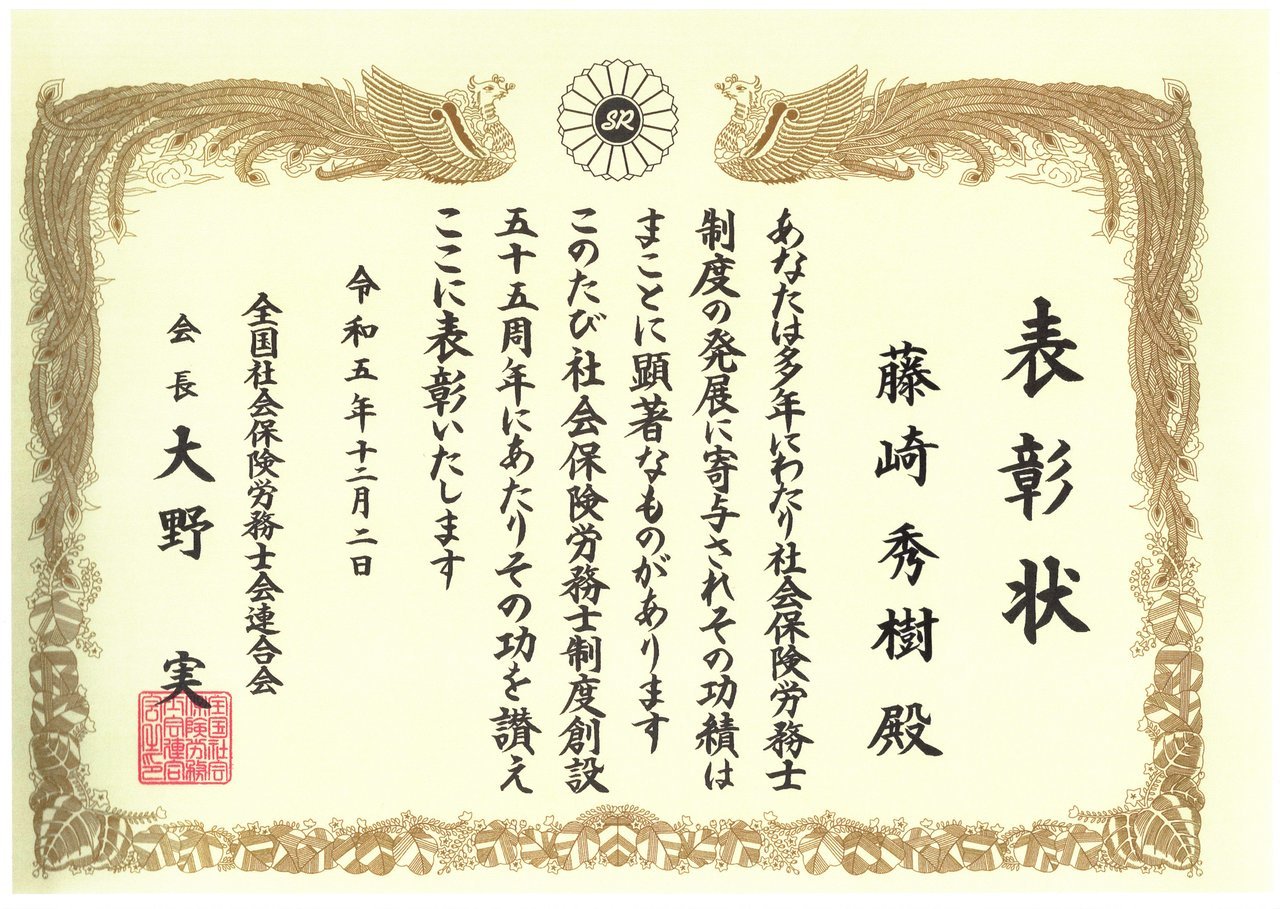 SR
表彰状
藤崎秀樹殿
あなたは多年にわたり社会保険労務士
制度の発展に寄与されその功績は
まことに顕著なものがあります
このたび社会保険労務士制度創設
五十五周年にあたりその功を讃え
ここに表彰いたします
令和五年十二月二日
全国社会保険労務士会連合会
会長 大野 実